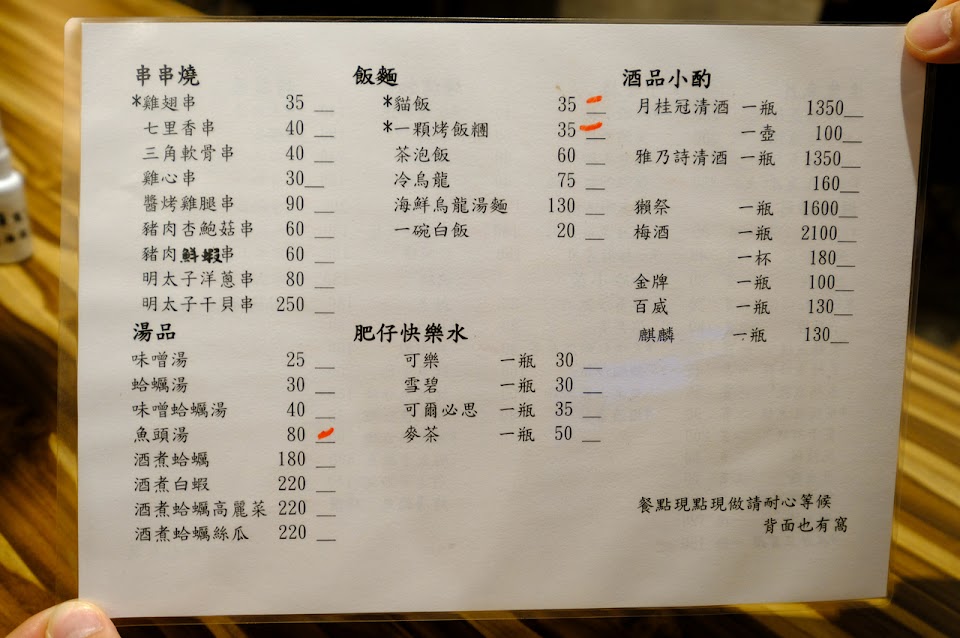 串串燒
*雞翅串 35 __
七里香串 40 __
三角軟骨串 40 __
雞心串 30 __
醬烤雞腿串 90 __
豬肉杏鮑菇串 60 __
豬肉鮮蝦串 60 __
明太子洋蔥串 80 __
明太子干貝串 250 __
湯品
味噌湯 25 __
蛤蠣湯 30 __
味噌蛤蠣湯 40 __
魚頭湯 80 __
酒煮蛤蠣 180 __
酒煮白蝦 220 __
酒煮蛤蠣高麗菜 220 __
酒煮蛤蠣絲瓜 220 __
飯麵
*貓飯 35 __
*一顆烤飯糰 35 __
茶泡飯 60 __
冷烏龍 75 __
海鮮烏龍湯麵 130 __
一碗白飯 20 __
肥仔快樂水
可樂 一瓶 30 __
雪碧 一瓶 30 __
可爾必思 一瓶 35 __
麥茶 一瓶 50 __
酒品小酌
月桂冠清酒 一瓶 1350__
一壺 100__
雅乃詩清酒 一瓶 1350__
160__
獺祭 一瓶 1600__
梅酒 一瓶 2100__
一杯 180__
金牌 一瓶 100__
百威 一瓶 130__
麒麟 一瓶 130__
餐點現點現做請耐心等候
背面也有窩